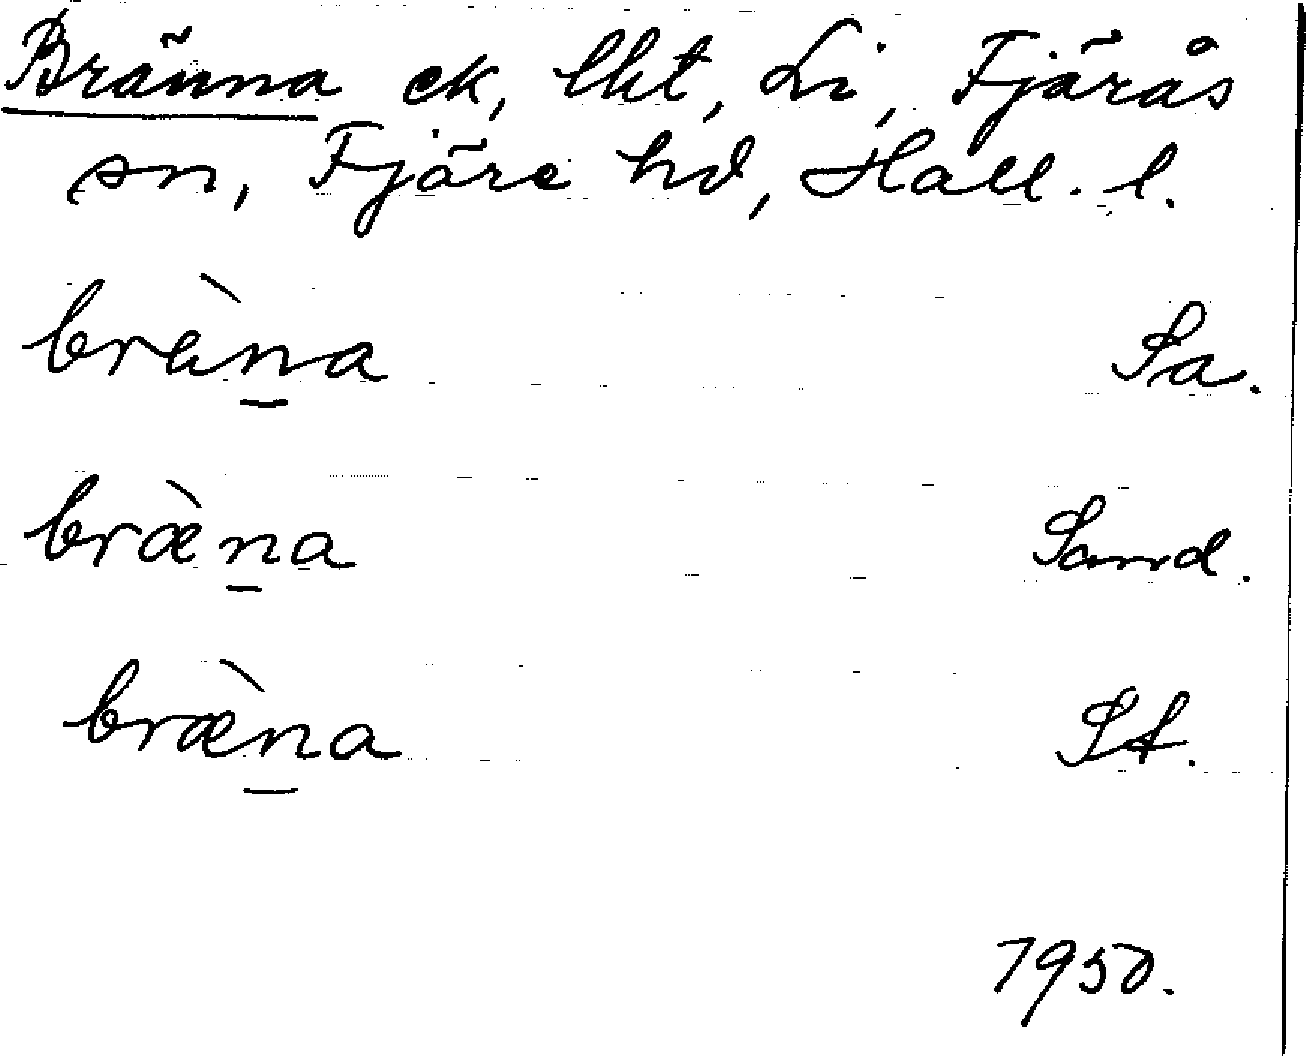 Bränna ek, lht, Li, Fjärås
sn, Fjäre hd, Hall. l.
brä̀n̲a Sa.
bræ̀n̲a Sand.
bræ̀n̲a St.
1950.